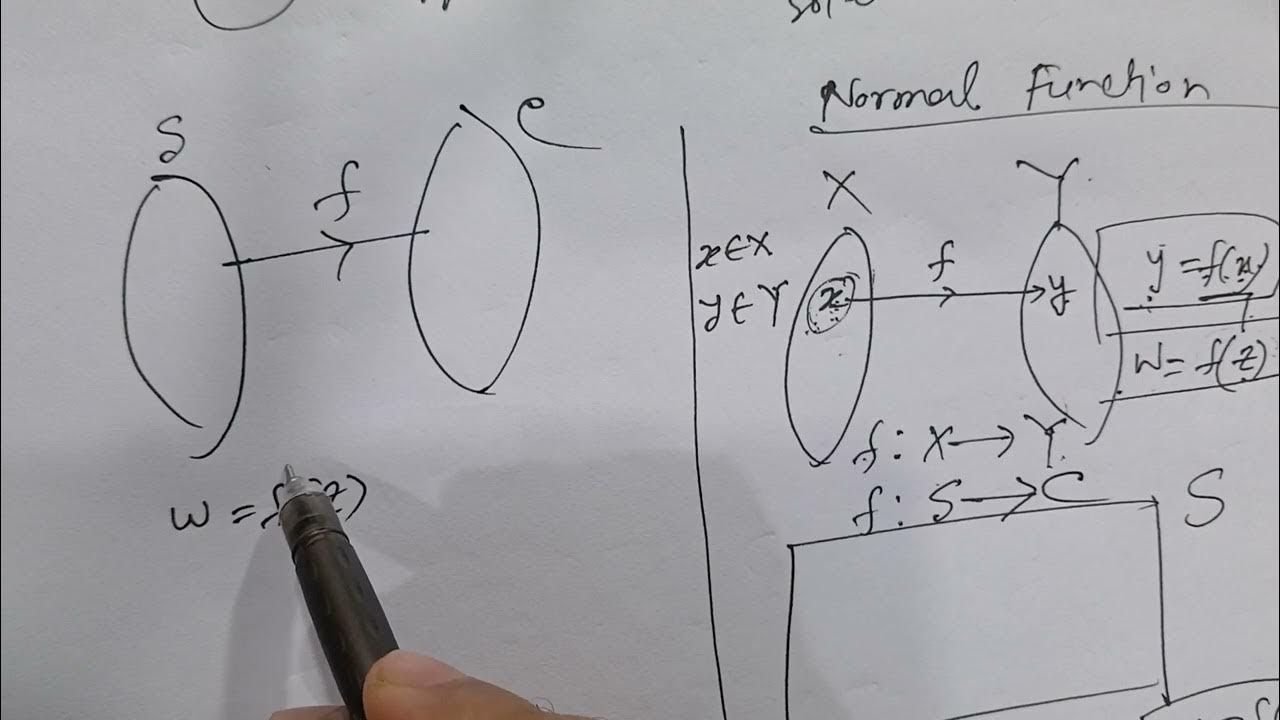 S
f
C
w = f(z)
Normal Function
X
Y
x∈X
y∈Y
x
f
y
y = f(x)
W = f(z)
f : X → Y
f : S → C
S